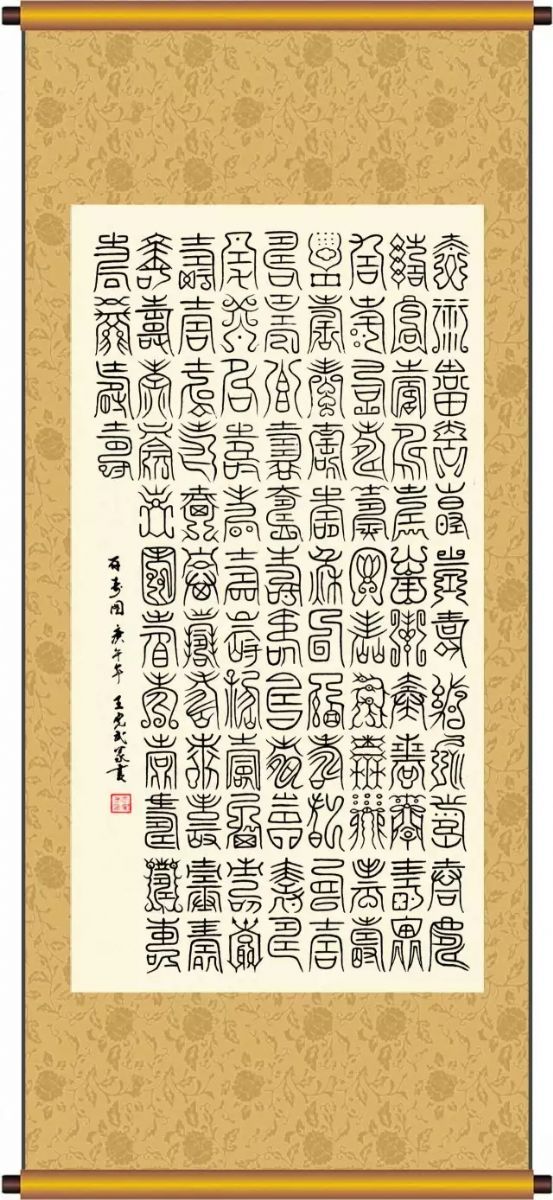 壽壽壽壽壽壽壽壽壽壽壽壽
壽壽壽壽壽壽壽壽壽壽壽壽
壽壽壽壽壽壽壽壽壽壽壽壽
壽壽壽壽壽壽壽壽壽壽壽壽
壽壽壽壽壽壽壽壽壽壽壽壽
壽壽壽壽壽壽壽壽壽壽壽壽
壽壽壽壽壽壽壽壽壽壽壽壽
壽壽壽壽壽壽壽壽壽壽壽壽
壽壽壽壽
百寿图 庚午年 王 武篆書